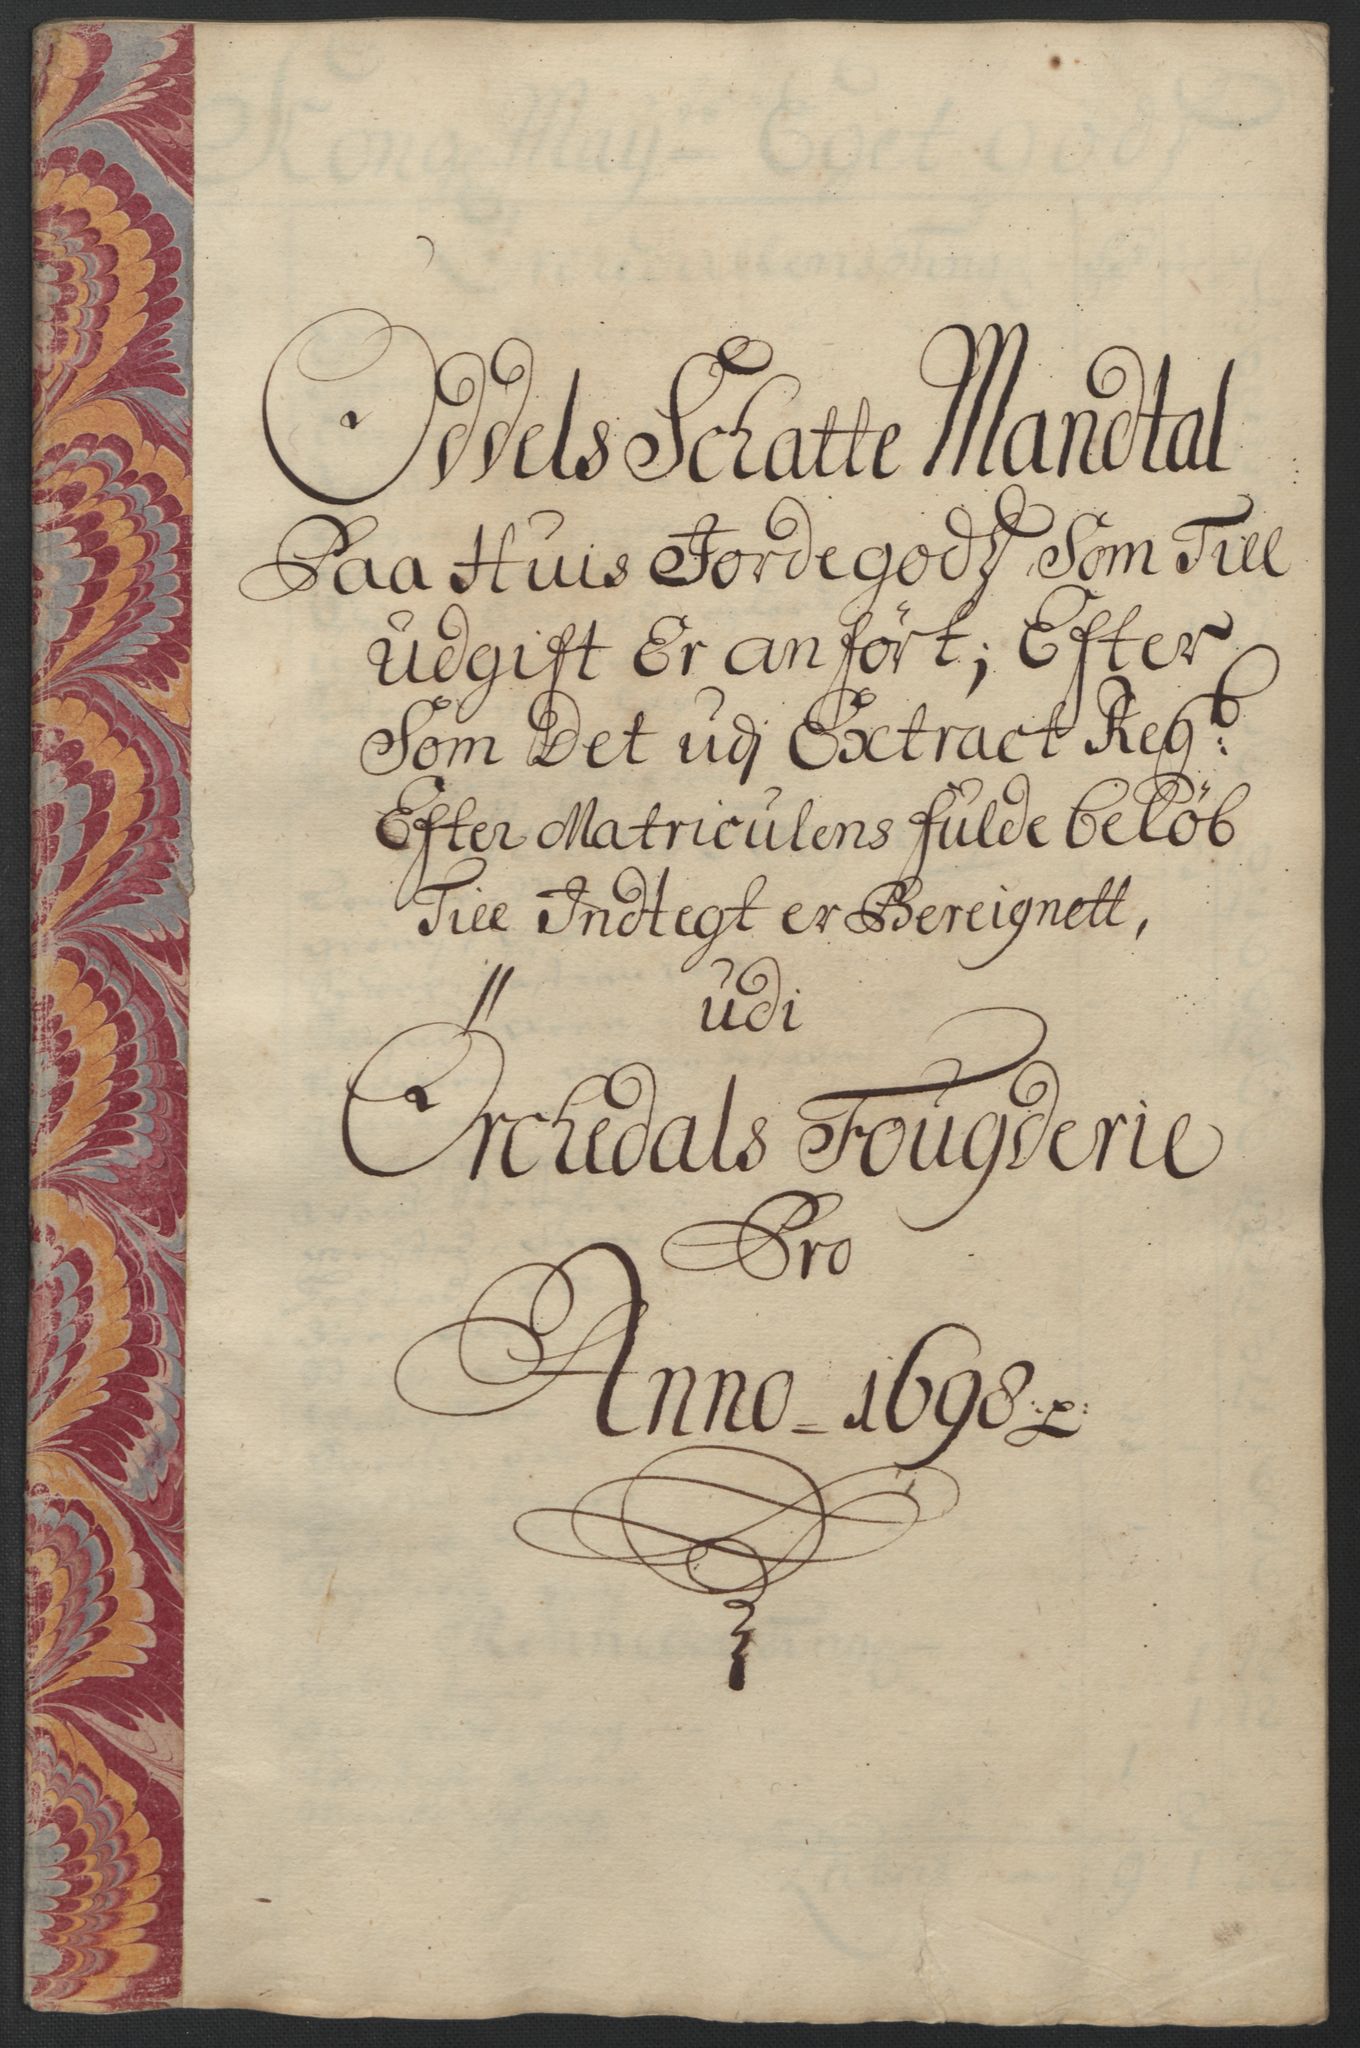 Oddels Schatte Mandtal
Paa Huis Jordegodz Som Till
udgift Er anført; Efter
Som Det udj Extract Regb:
Efter Matriculens fulde beløb
Till Indtegt er Bereignett,
udi
Örchedals Fougderie
Pro
Anno 1698